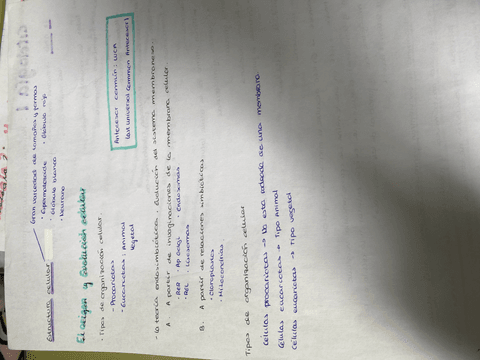 Estructura celular
Gran variedad de tamaños y formas
• Espermatozoide
• Glóbulo blanco
• Neurona
• Glóbulo rojo
El origen y Evolución celular
• Tipos de organización celular:
- Procariotas
- Eucariotas: Animal
Vegetal
Antecesor común: LUCA
(last universal common Antecesor)
- La teoría endosimbiótica. Evolución del sistema membranoso.
A. A partir de invaginaciones de la membrana celular
• RER • Ap Golgi • Endosomas
• REL • Lisosomas
B. A partir de relaciones simbióticas
• Cloroplastos
• Mitocondrias
Tipos de organización celular
Células procariotas → No esta rodeada de una membrana
Células eucariotas → Tipo Animal
Células eucariotas → Tipo vegetal